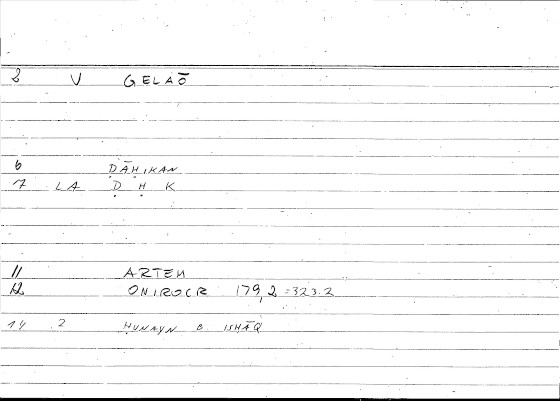 2 V GELAŌ
6 ḌĀḤIKAN
7 LA Ḍ Ḥ K
11 ARTEM
12 ONIROCR 179,2 =323.2
14 2 ḤUNAYN B ISḤĀQ